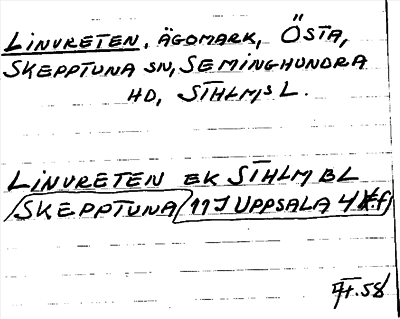 LINVRETEN, ÄGOMARK, ÖSTA,
SKEPPTUNA SN, SEMINGHUNDRA
HD, STHLMS L.
LINVRETEN EK STHLM BL
SKEPPTUNA 11 I UPPSALA 4
.58